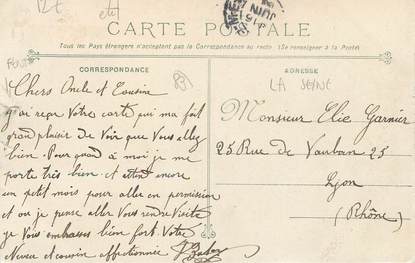 CARTE POSTALE
Tous les Pays étrangers n'acceptent pas la Correspondance au recto. (Se renseigner à la Poste)
CORRESPONDANCE
Chers Oncle et Cousine
j'ai reçu Votre carte qui ma fait
grand plaisir de Voir que Vous allez
bien. Pour quand a moi je me
porte très bien et attend encore
un petit mois pour aller en permission
et ou je pense aller Vous rendre Visite
je Vous embrasses bien fort Votre
Neveu et cousin affectionné
ADRESSE
LA SEYNE
Monsieur Elie Garnier
25 Rue de Vauban 25
Lyon
(Rhône)